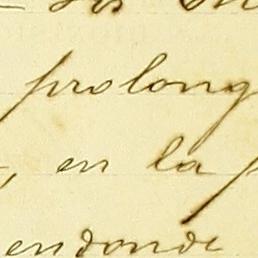 prolong
, en la p
endonde